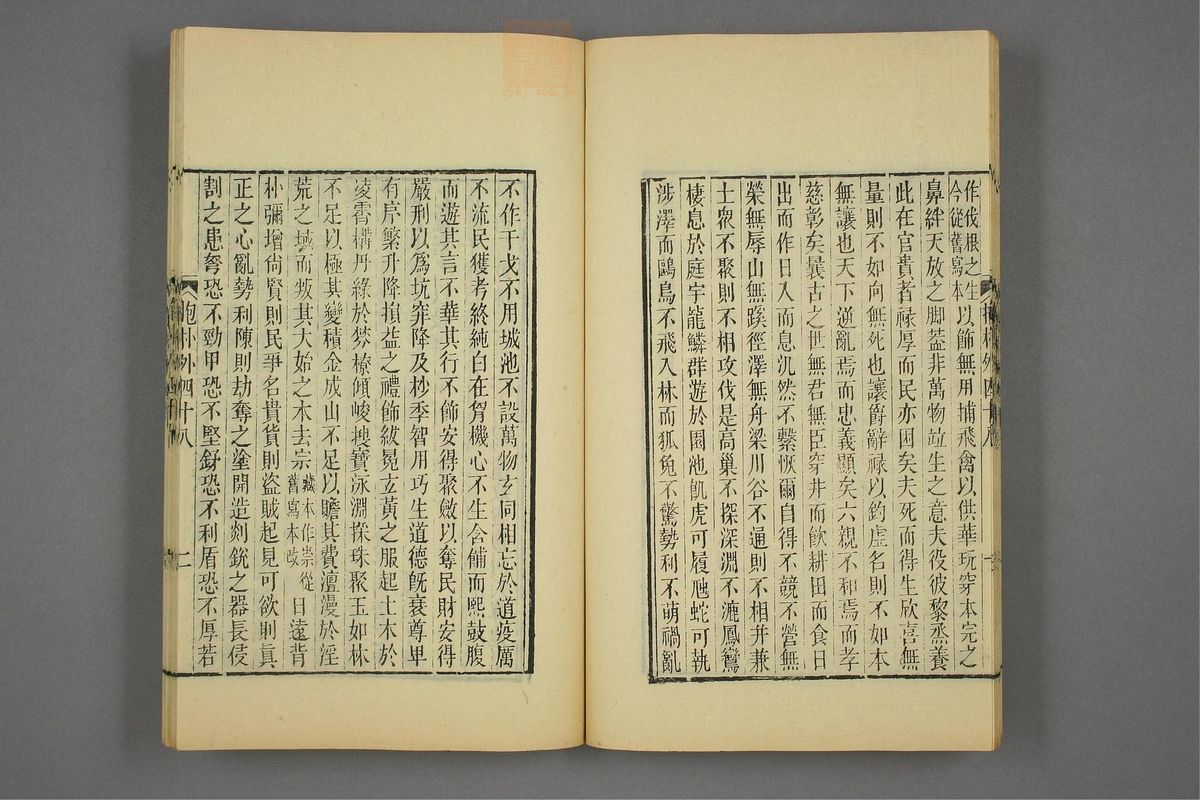 作伐根之生
今從舊寫本以飾無用捕飛禽以供華玩穿本完之
鼻絆天放之脚葢非萬物竝生之意夫役彼黎烝養
此在官貴者祿厚而民亦困矣夫死而得生欣喜無
量則不如向無死也讓爵辭祿以釣虛名則不如本
無讓也天下逆亂焉而忠義顯矣六親不和焉而孝
慈彰矣曩古之世無君無臣穿井而飲耕田而食日
出而作日入而息汎然不繫恢爾自得不競不營無
榮無辱山無蹊徑澤無舟梁川谷不通則不相幷兼
士眾不聚則不相攻伐是高巢不探深淵不漉鳳鸞
棲息於庭宇龍鱗群遊於園池飢虎可履虺蛇可執
涉澤而鷗鳥不飛入林而狐兔不驚勢利不萌禍亂
抱朴外四十八
一
不作干戈不用城池不設萬物玄同相忘於道疫厲
不流民獲考終純白在胷機心不生含餔而熙鼓腹
而遊其言不華其行不飾安得聚斂以奪民財安得
嚴刑以爲坑穽降及杪季智用巧生道德旣衰尊卑
有序繁升降損益之禮飾紱冕玄黃之服起土木於
凌霄構丹綠於棼橑傾峻搜寶泳淵採珠聚玉如林
不足以極其變積金成山不足以贍其費澶漫於淫
荒之域而叛其大始之本去宗藏本作崇從舊寫本改日遠背
朴彌增尙賢則民爭名貴貨則盜賊起見可欲則眞
正之心亂勢利陳則劫奪之塗開造剡銳之器長侵
割之患弩恐不勁甲恐不堅鋒恐不利盾恐不厚若
抱朴外四十八
二